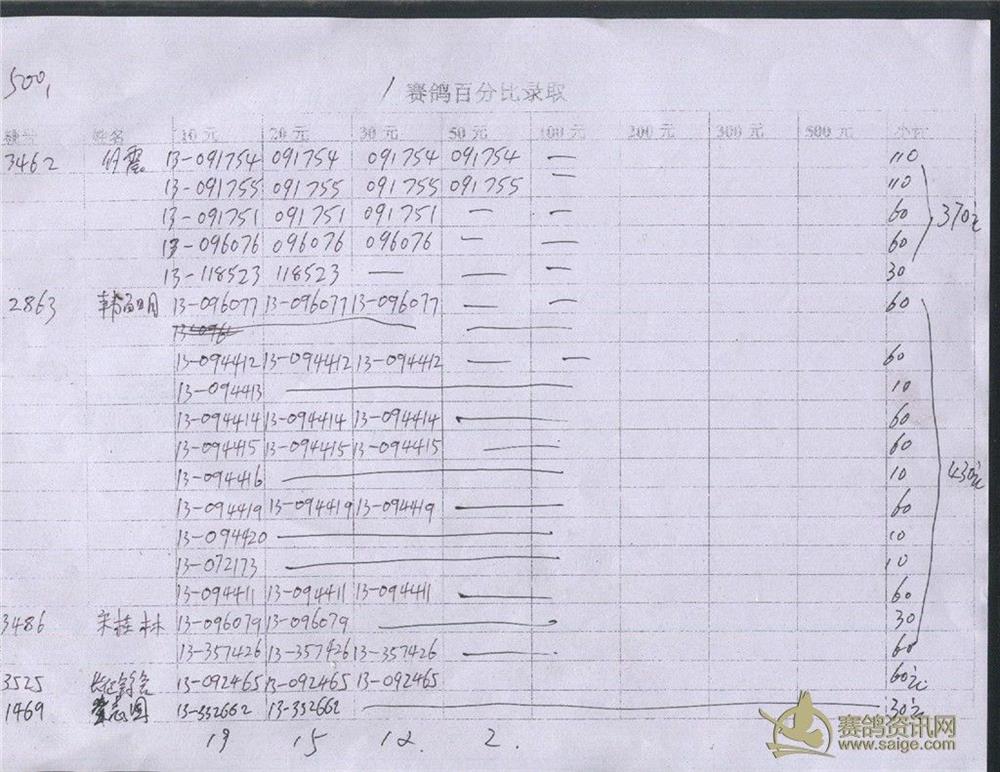 500,
1 赛鸽百分比录取
棚号 姓名 10 元 20 元 30 元 50 元 100 元 200 元 300 元 500 元 小计
3462 13-091754 091754 091754 091754 — 110
13-091755 091755 091755 091755 — 110
13-091751 091751 091751 — — 60 370元
13-096076 096076 096076 — — 60
13-118523 118523 — — — 30
2863 13-096077 13-096077 13-096077 — — 60
13-0961
13-094412 13-094412 13-094412 — — 60
13-094413 — 10
13-094414 13-094414 13-094414 — 60
13-094415 13-094415 13-094415 — 60
13-094416 — 10 430元
13-094419 13-094419 13-094419 — 60
13-094420 — 10
13-072173 — 10
13-094411 13-094411 13-094411 — 60
3486 宋桂林 13-096079 13-096079 — 30
13-357426 13-357426 13-357426 — 60
3525 13-092465 13-092465 13-092465 60元
1469 13-332662 13-332662 — 30元
19 15 12. 2.
赛鸽资讯网
www.saige.com